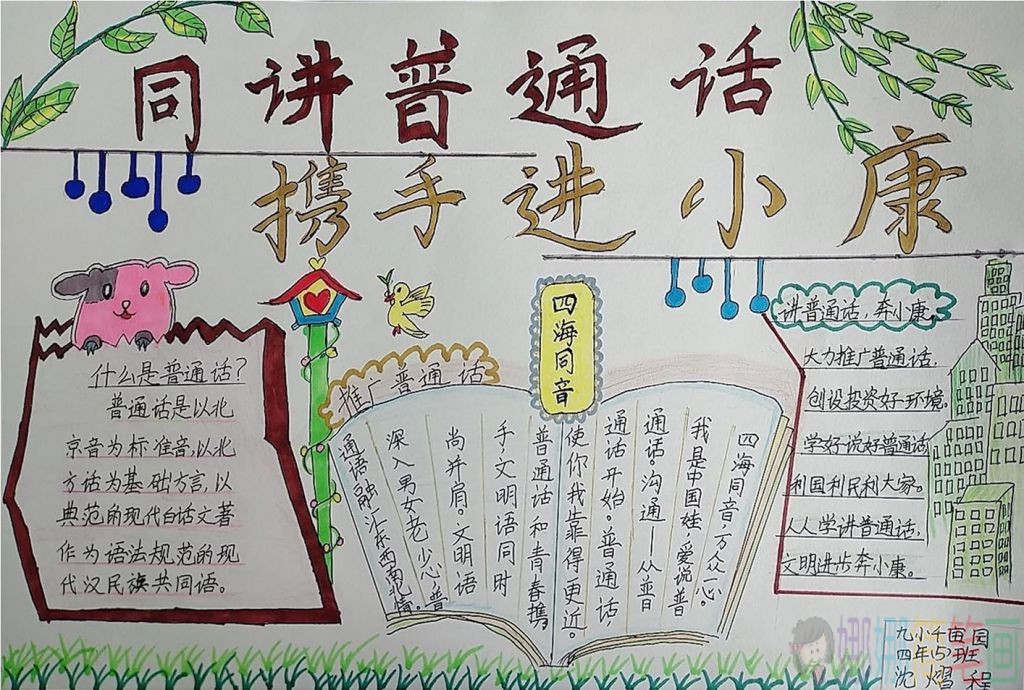 同讲普通话
携手进小康
什么是普通话?
普通话是以北
京音为标准音,以北
方话为基础方言,以
典范的现代白话文著
作为语法规范的现
代汉民族共同语。
推广普通话
四海同音
四海同音万众一心。
我是中国娃,爱说普
通话。沟通——从普
通话开始。普通话
使你我靠得更近。
普通话和青春携
手,文明语同时
尚并肩。文明语
深入男女老少心,普
通语融汇东西南北情。
讲普通话,奔小康。
大力推广普通话,
创设投资好环境。
学好说好普通话
利国利民利大家。
人人学讲普通话,
文明进步奔小康。
九小千亩园
四年(5)班
沈熠程